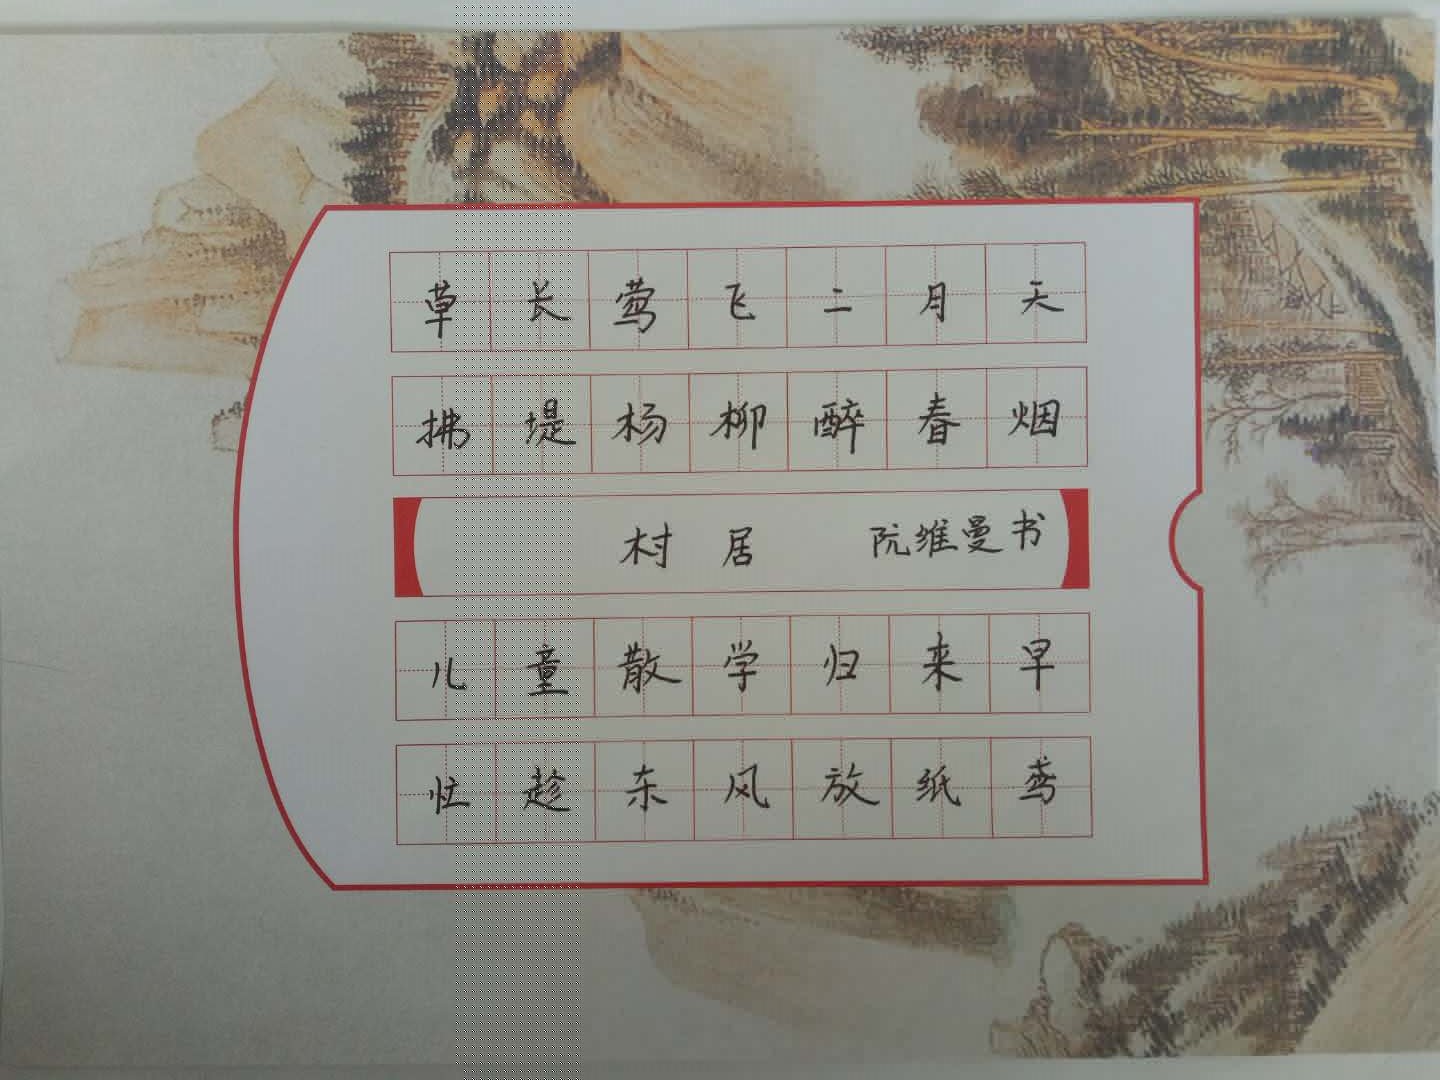 草长莺飞二月天
拂堤杨柳醉春烟
村居 阮维曼书
儿童散学归来早
忙趁东风放纸鸢